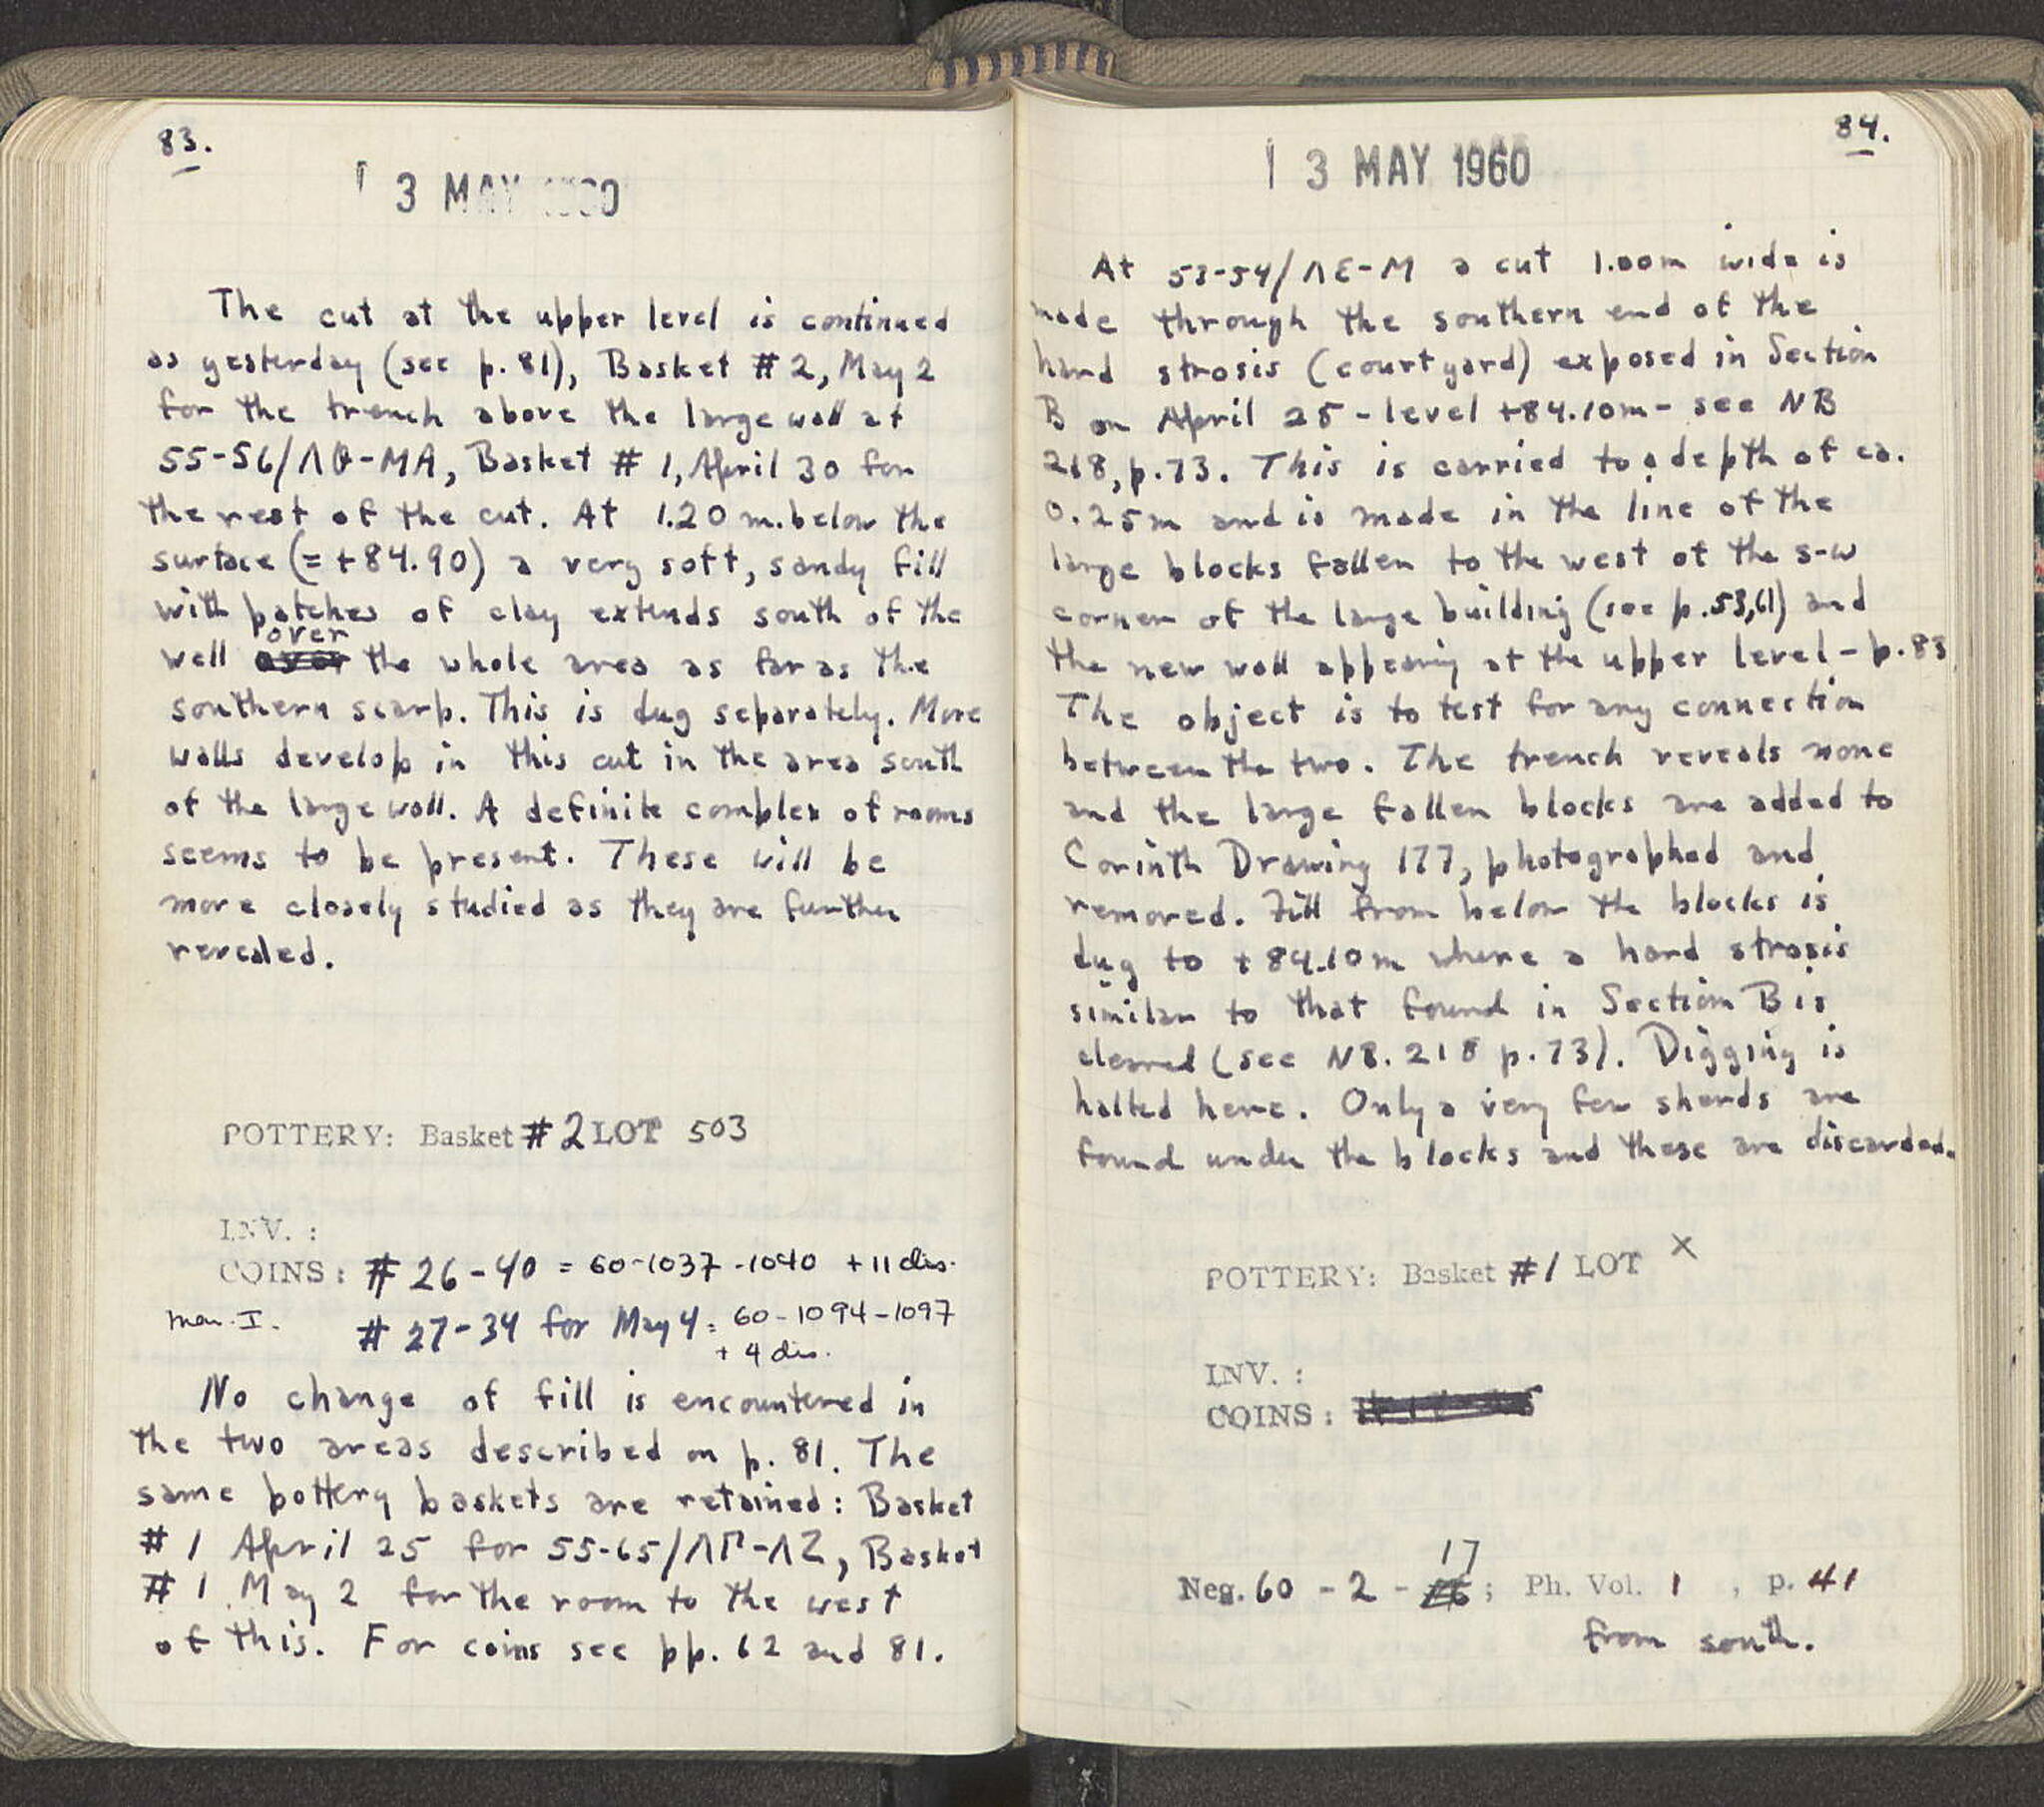 83.
3 MAY 1960
The cut at the upper level is continued
as yesterday (see p. 81), Basket # 2, May 2
for the trench above the large wall at
55-56/ΛΘ-ΜΑ, Basket # 1, April 30 for
the rest of the cut. At 1.20 m. below the
surface (= +84.90) a very soft, sandy fill
with patches of clay extends south of the
over
well the whole area as far as the
southern scarp. This is dug separately. More
walls develop in this cut in the area south
of the large wall. A definite complex of rooms
seems to be present. These will be
more closely studied as they are further
revealed.
POTTERY: Basket # 2 LOT 503
INV. :
COINS: # 26-40 = 60-1037-1040 + 11 dis.
# 27-34 for May 4 = 60-1094-1097
+ 4 dis.
No change of fill is encountered in
the two areas described on p. 81. The
same pottery baskets are retained: Basket
# 1 April 25 for 55-65/ΛΓ-ΛΖ, Basket
# 1 May 2 for the room to the west
of this. For coins see pp. 62 and 81.
84.
3 MAY 1960
At 53-54/ΛΕ-Μ a cut 1.00m wide is
made through the southern end of the
hard strosis (courtyard) exposed in Section
B on April 25 - level +84.10m - see NB
218, p. 73. This is carried to a depth of ca.
0.25m and is made in the line of the
large blocks fallen to the west of the s-w
corner of the large building (see p. 53, 61) and
the new wall appearing at the upper level - p. 83
The object is to test for any connection
between the two. The trench reveals none
and the large fallen blocks are added to
Corinth Drawing 177, photographed and
removed. Fill from below the blocks is
dug to +84.10m where a hard strosis
similar to that found in Section B is
cleared (see NB. 218 p. 73). Digging is
halted here. Only a very few sherds are
found under the blocks and these are discarded.
POTTERY: Basket #1 LOT X
INV. :
COINS:
17
Neg. 60 - 2 - ; Ph. Vol. 1 , p. 41
from south.